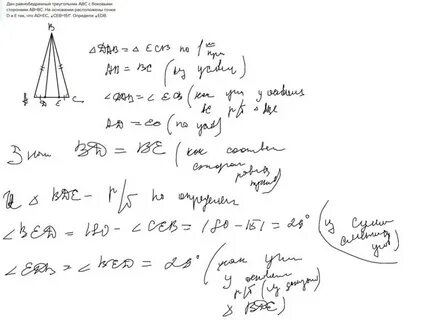 Дан равнобедренный треугольник ABC с боковыми
сторонами AB=BC. На основании расположены точки
D и E так, что AD=EC, ∠CEB=151°. Определи ∠EDB.
B
A D E C
△ DAB = △ ECB по 1
AB = BC (из условия)
∠DAB = ∠ECB (как угл у основан
р/б △ ABC
AD = EC (по усл)
BD = BE (как соответ
сторон
равны
△ BDE - р/б по определен
∠BED = 180 - ∠CEB = 180 - 151 = 29° (из сумм
смежных
угл)
∠EDB = ∠BED = 29° (как угл
у основан
р/б
△ BDE)